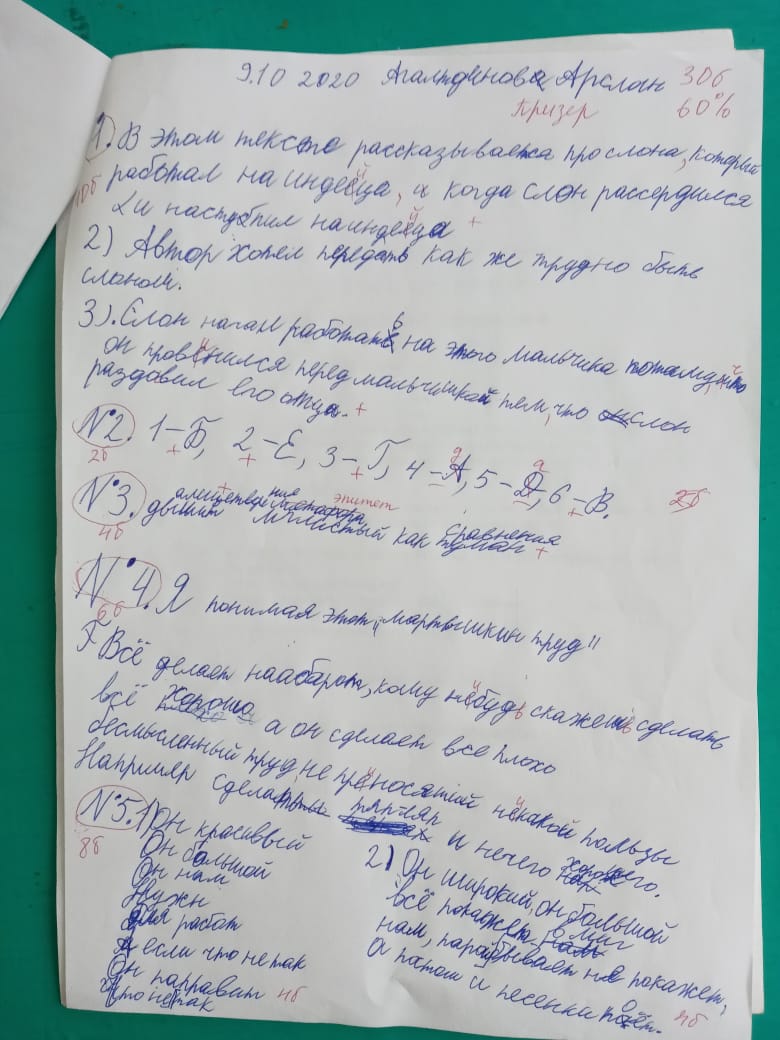 9.10 2020 Агалтдинова Арслан 30б
Призер 60%
1. В этом тексте рассказывается про слона, который
10б работал на индейца, и когда слон рассердился
и наступил на индейца +
2) Автор хотел передать как же трудно быть
слоном.
3). Слон начал работать на этого мальчика потому, что
он провинился перед мальчишкой тем, что слон
раздавил его отца. +
№2. 1-Б, 2-Е, 3-Г, 4-А, 5-Д, 6-В.
2б + + + - - +
2б
№3. олицетворение метафора эпитет сравнения
4б дымит мглистый как туман +
№4. Я понимая этот "мартышкин труд"
6б
Всё делает наабарот, кому нибудь скажешь сделать
всё хорошо а он сделает все плохо
бесмысленный труд, не приносятий некакой пользы
Например сделать и нечего хорошего.
№5. 1) Он красивый
8б Он большой
Он нам
Нужн
для работ
А если что не так
Он паправит
Что не так 4б
2) Он широкий, он большой
всё покажет в миг
нам, парабывает не покажет,
а потом и песенки поёт. 4б